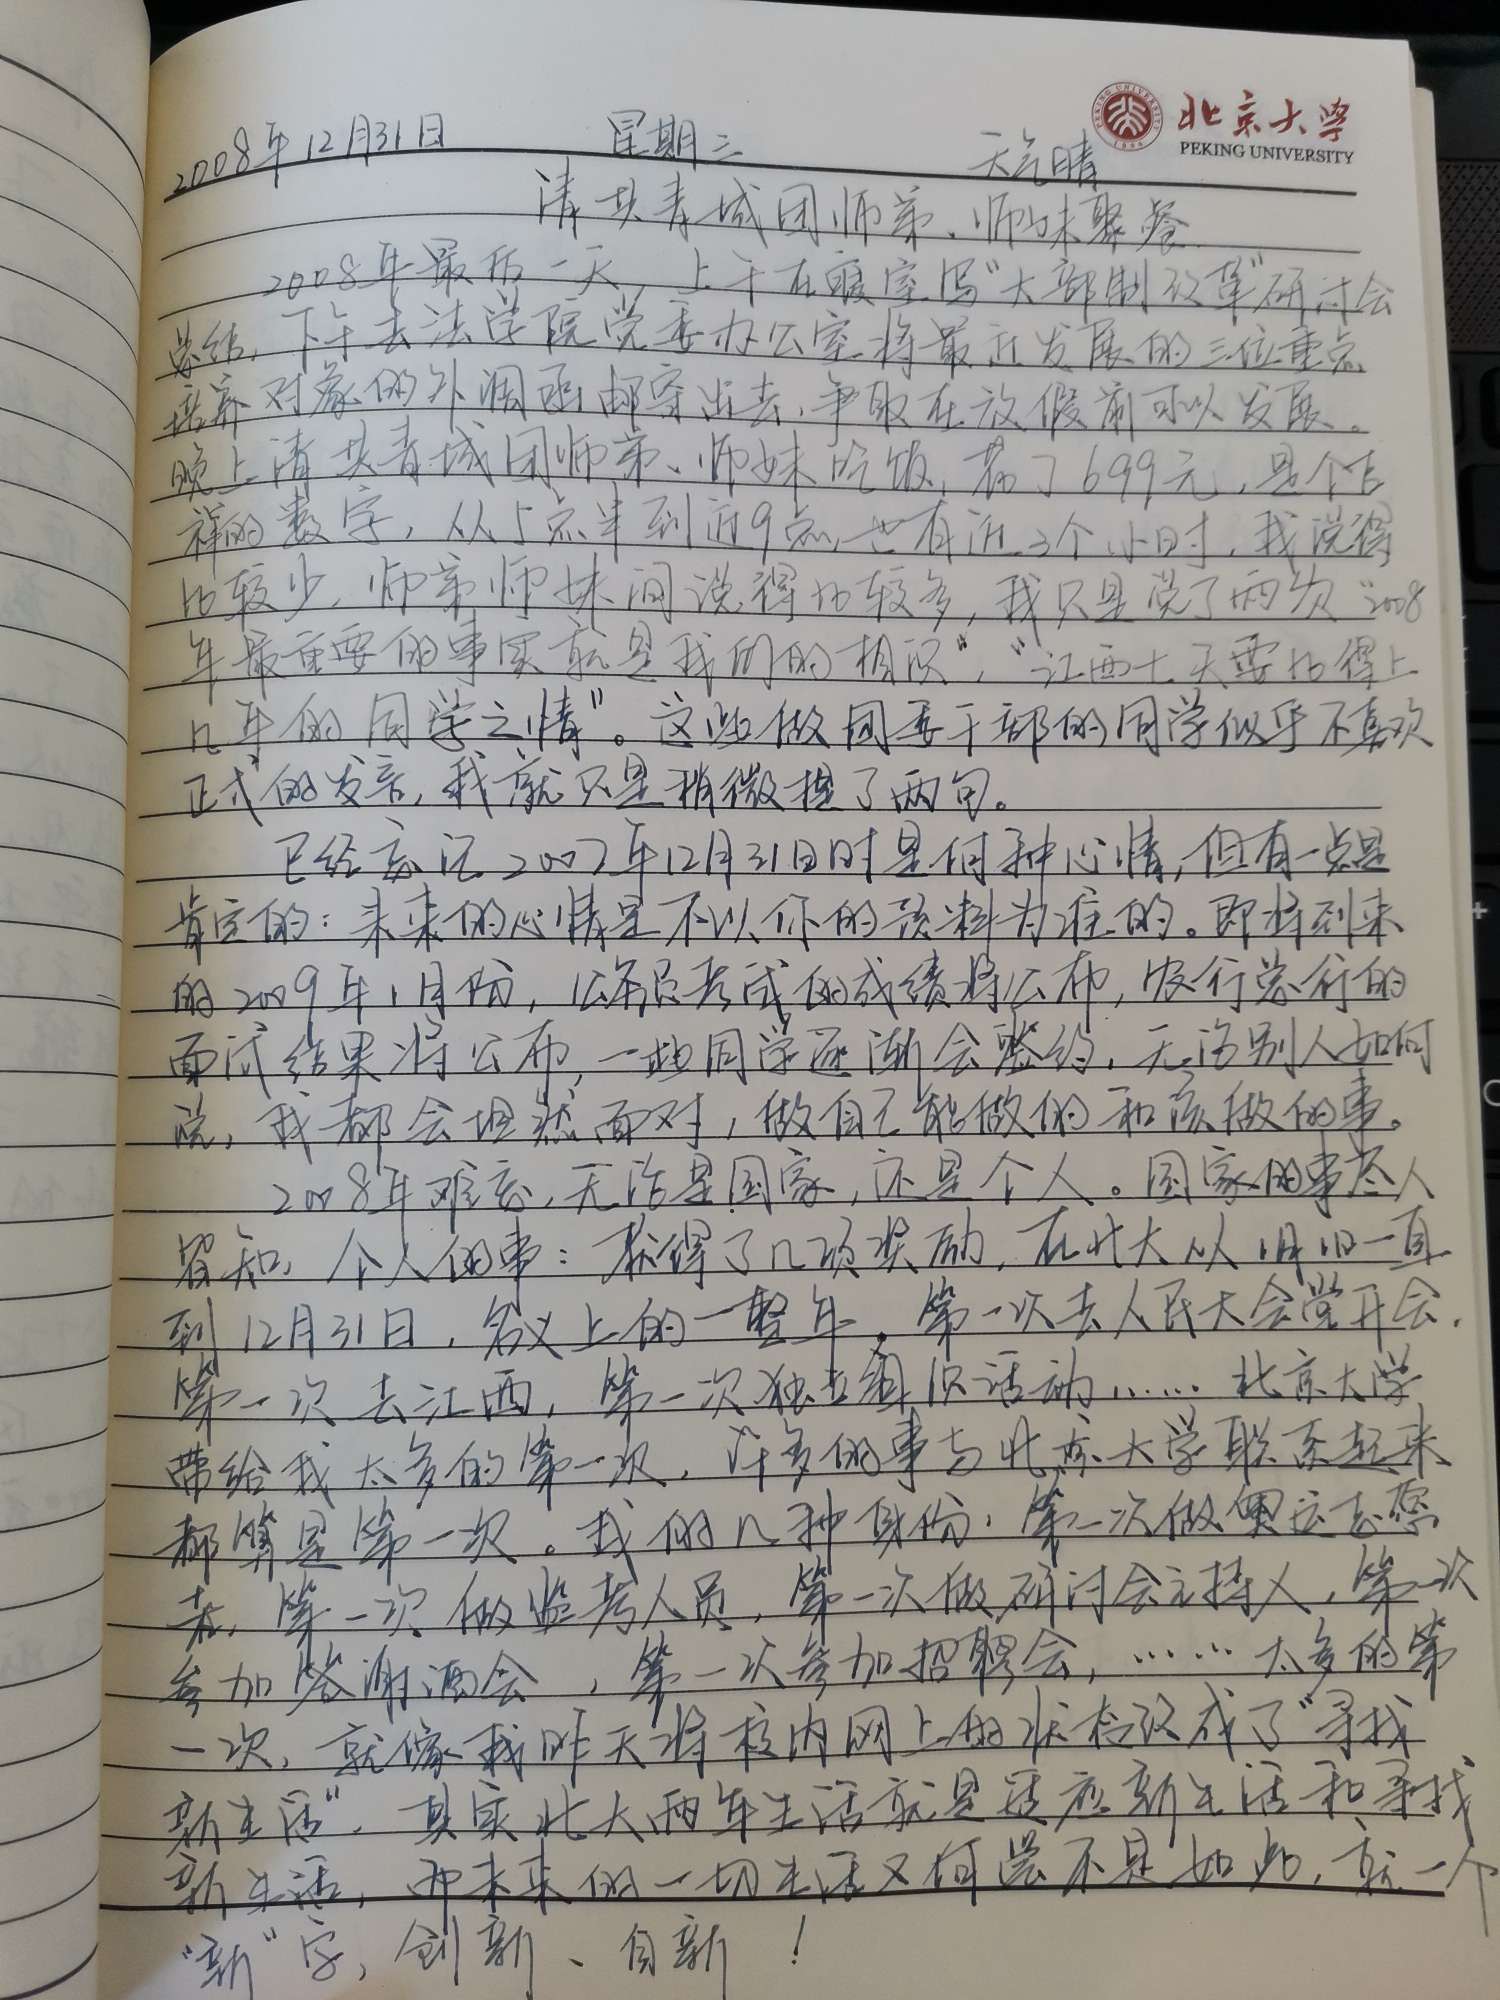 北京大学
PEKING UNIVERSITY
2008年12月31日 星期三 天气晴
请共青城团师弟、师妹聚餐
2008年最后一天，上午在寝室写“大部制改革”研讨会
总结，下午去法学院党委办公室将最近发展的三位重点
培养对象的外调函邮寄出去，争取在放假前可以发展。
晚上请共青城团师弟、师妹吃饭，花了699元，是个吉
祥的数字，从5点半到近9点，也有近3个小时，我说得
比较少，师弟师妹间说得比较多，我只是说了两次“2008
年最重要的事实就是我们的相识”，“江西十天要比得上
几年的同学之情”。这些做团委干部的同学似乎不喜欢
正式的发言，我就只是稍微提了两句。
已经忘记2007年12月31日时是何种心情，但有一点是
肯定的：未来的心情是不以你的预料为准的。即将到来
的2009年1月份，公务员考试的成绩将公布，农行总行的
面试结果将公布，一些同学逐渐会签约，无论别人如何
说，我都会坦然面对，做自己能做的和该做的事。
2008年难忘，无论是国家，还是个人。国家的事尽人
皆知，个人的事：获得了几项奖励，在北大从1月1日一直
到12月31日，名义上的一整年，第一次去人民大会堂开会，
第一次去江西，第一次独立组织活动……北京大学
带给我太多的第一次，许多的事与北京大学联系起来
都算是第一次。我的几种身份：第一次做奥运志愿
者，第一次做监考人员，第一次做研讨会主持人，第一次
参加答谢酒会，第一次参加招聘会，……太多的第
一次，就像我昨天将校内网上的状态改成了“寻找
新生活”，其实北大两年生活就是适应新生活和寻找
新生活，而未来的一切生活又何尝不是如此，就一个
“新”字，创新、自新！